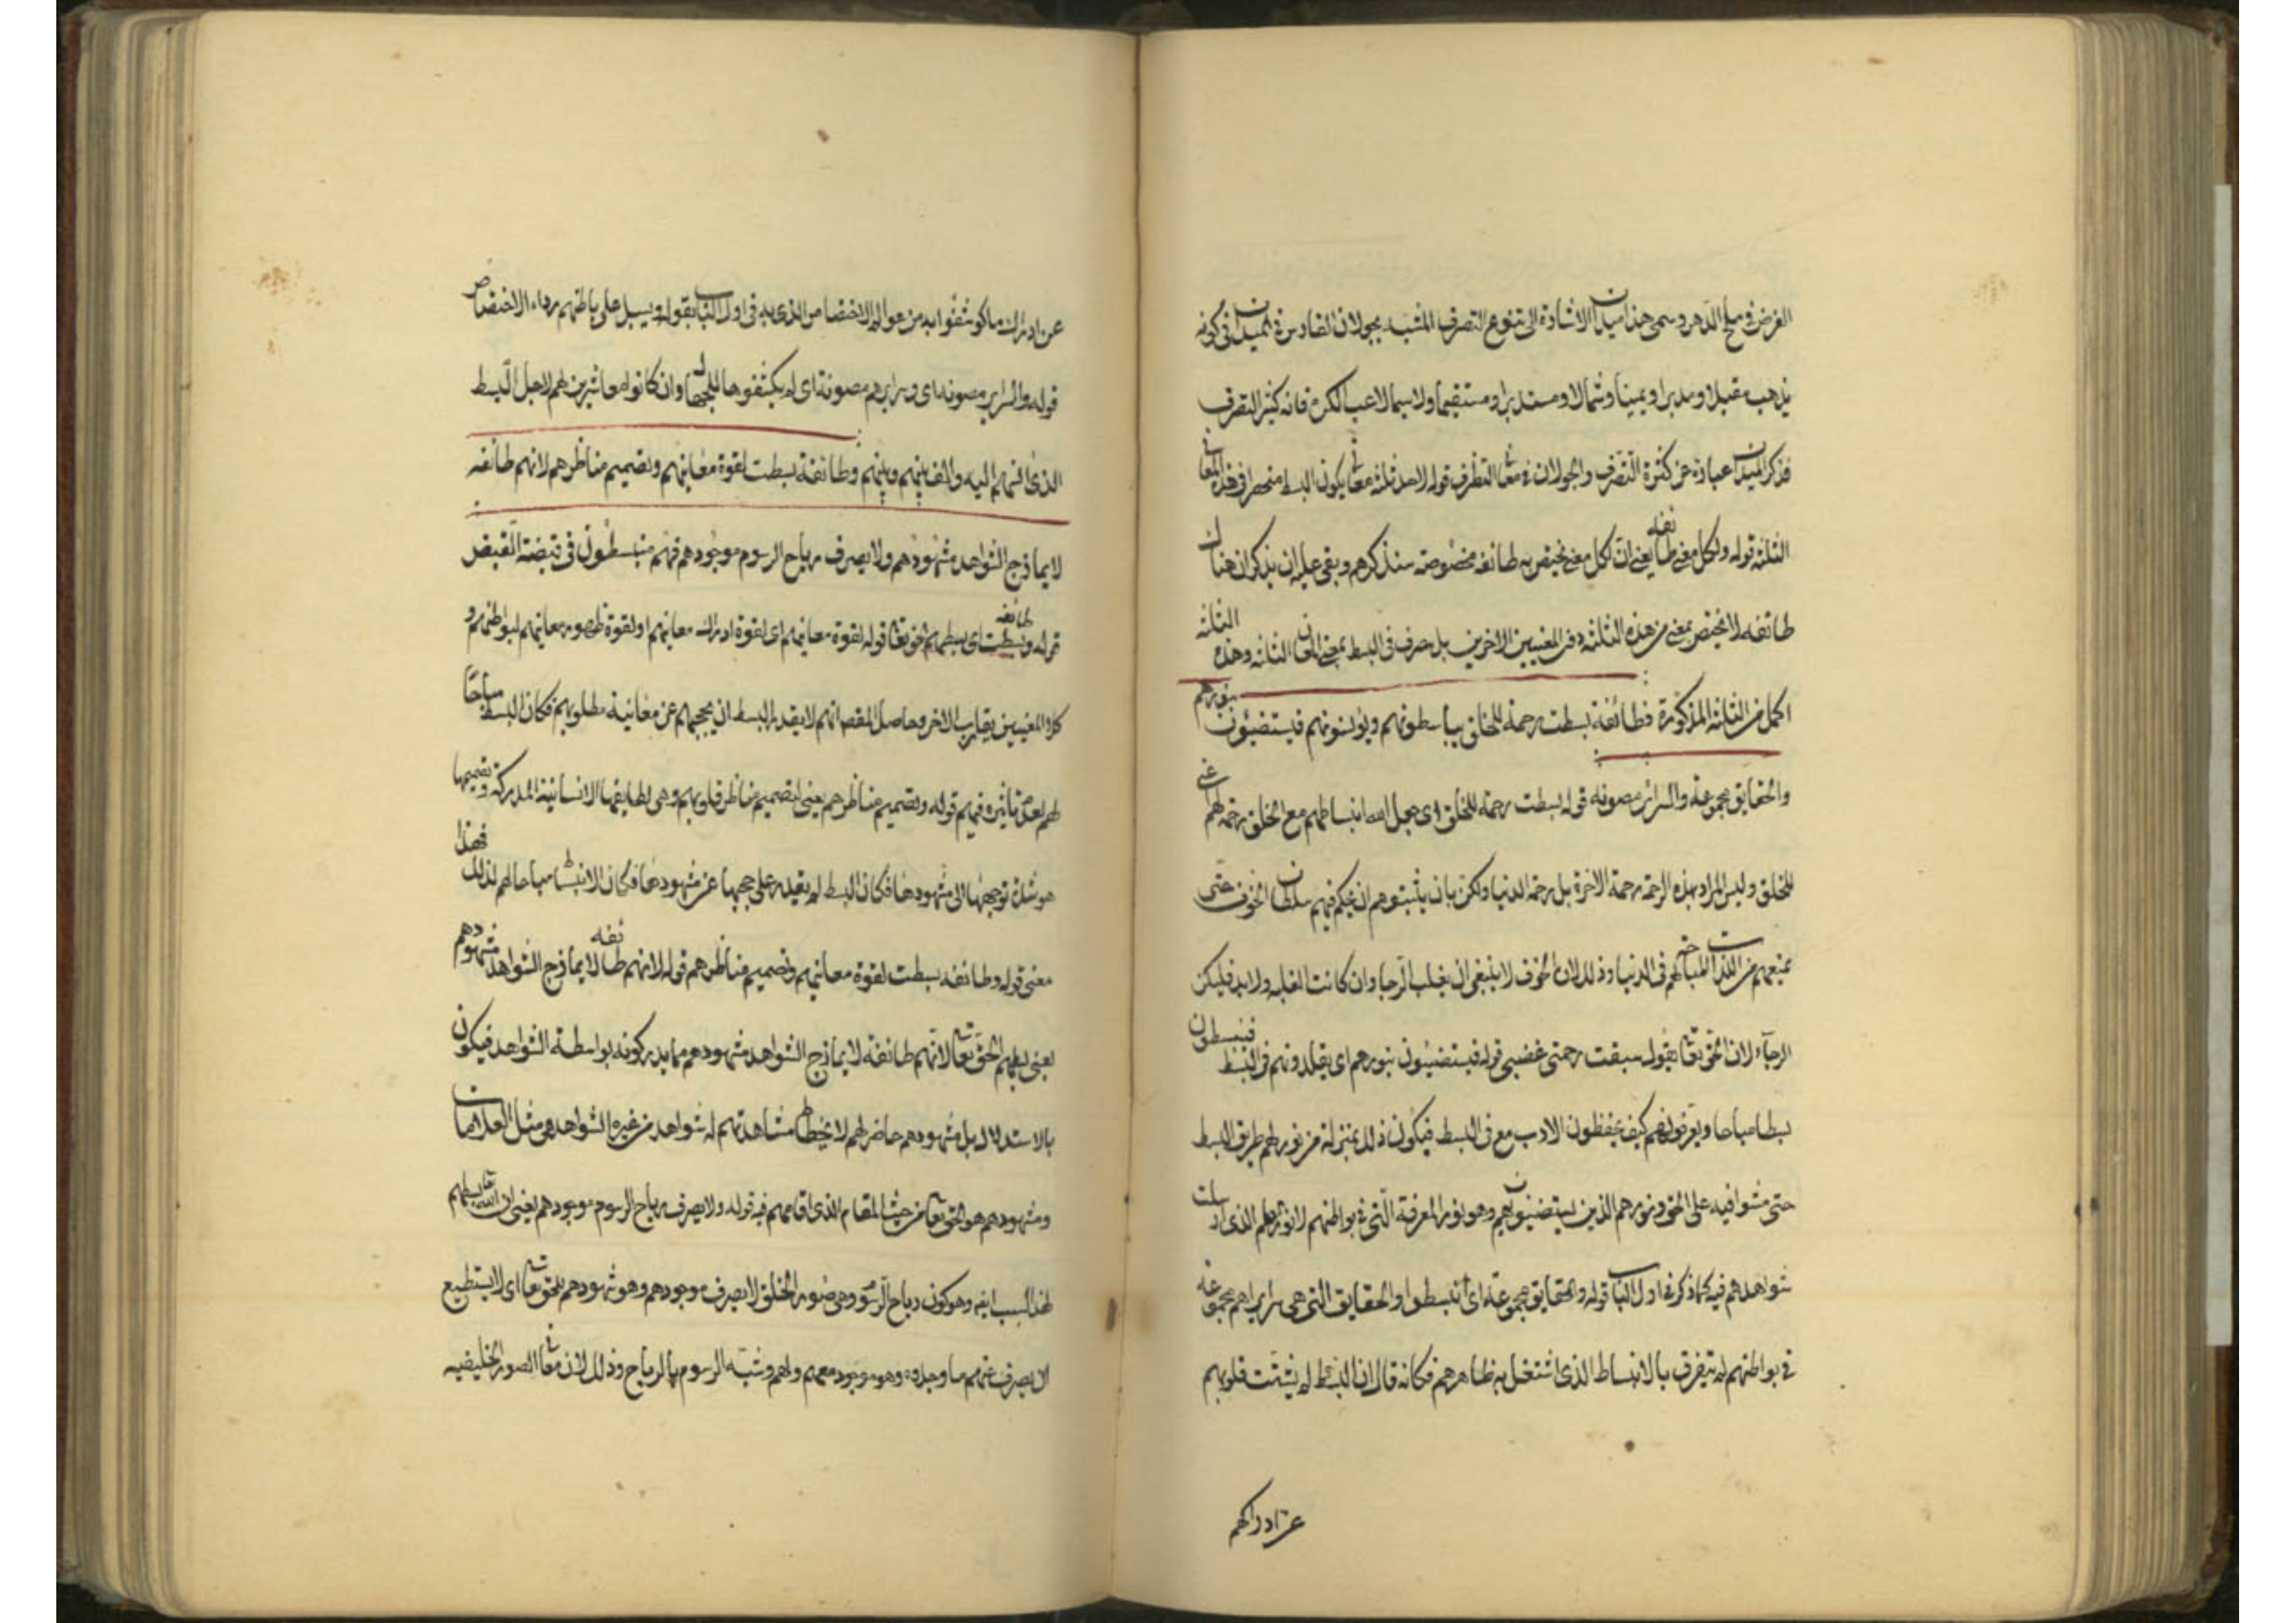 الغرض في ملح الدهر وسمى هذا ميدان الاشارة الى تنوع التصرف المشبه بجولان الفارس في الميدان في كونه
يذهب مقبلا ومدبرا ويمينا وشمالا ومستديرا ومستقيما ولاسيما لاعب الكره فانه كثير التصرف
فذكر الميدان عبارة عن كثرة التصرف والجولان في التطرف قوله لاحد ثلثه معان يكون البسط منحصر في هذه المعاني
الثلثه قوله ولكل معنى طائفه يعني ان لكل معنى يختص به طائفه مخصوصة سنذكرهم وبقي عليه ان يذكر ان هناك
طائفه لا يختص بمعنى من هذه الثلثه دون المعنيين الاخرين بل تصرف في البسط بمعنى المعاني الثلثه وهذه الثلثه
اكمل من الثلثه المذكورة فطائفة بسطت رحمة للخلق يباسطونهم ويؤنسونهم فيستضيئون بنورهم
والحقايق مجموعة والسرائر مصونه قوله بسطت رحمة للخلق اى جعل الله انبساطهم مع الخلق رحمة لهم اعني
للخلق وليس المراد بهذه الرحمة رحمة الاخرة بل رحمة الدنيا ولكن بان يثبتوهم ان يحكم فيهم سلطان الخوف حتى
يمنعهم من اللذات المباحة لهم في الدنيا وذلك لان الخوف لا ينبغي ان يغلب الرجا وان كانت الغلبه ولابد فليكن
الرجآء لان الحق تعالى يقول سبقت رحمتي غضبي قوله فيستضيئون بنورهم اى يقلدونهم في البسط فينبسطون
بسطا مباحا ويعرفونهم كيف يحفظون الادب مع في البسط فيكون ذلك بمنزلة من نور لهم طريق البسط
حتى مشوا فيه على الحق ونورهم الذين يستضيئون بهم وهو نور المعرفة التي في بواطنهم لا نور لهم الذي اسبلت
شواهدهم فيه كما ذكر في اول الباب قوله والحقايق مجموعة اى انبسطوا والحقايق التي هي سرايرهم مجموعة
في بواطنهم لم يتفرق بالانبساط الذي اشتغل به ظاهرهم فكانه قال ان البسط لم يشتت قلوبهم
عن ادراكهم
عن ادراك ما كوشفوا به من عوالم الاختصاص الذي بدى في اول الباب بقوله ويسبل على باطنهم رداء الاختصاص
قوله والسراير مصونه اى وسرايرهم مصونة اى لم يكشفوها وان كانوا معاشرين لهم لاجل البسط
الذي اليه والف بينهم وبينهم وطائفة بسطت لقوة معاينهم وتصميم مناظرهم لانهم طائفه
لا يمازج الشواهد مشهودهم ولا يصرف رياح الرسوم موجودهم فهم منبسطون في قبضة القبض
قوله وطائفه بسطت اى بسطهم الحق تعالى قوله لقوة معاينهم اى لقوة ادراك معاينهم او لقوة ظهور معاينهم لبواطنهم و
كلا المعنيين يقارب الاخر وحاصل المقصد انهم لا يقدر البسط ان يحجبهم عن معاينة مطلوبهم فكان البسط مباحًا
لهم لعدم تاثيره فيهم قوله وتصميم مناظرهم يعني لتصميم مناظر قلوبهم وهي لطايفها الانسانية المدركة وتصميمها
هو شدة توجهها الى مشهودها فكان البسط لم يقدر على حجبها عن مشهودها فكان الانبساط مباحا لهم لذلك فهذا
معنى قوله وطائفه بسطت لقوة معاينهم وتصميم مناظرهم قوله لانهم طائفه لا يمازج الشواهد مشهودهم
يعني بسطهم الحق تعالى لانهم طائفة لا يمازج الشواهد مشهودهم مما يدركونه بواسطة الشواهد فيكون
بالاستدلال بل مشهودهم حاضر لهم لا يخالط مشاهدتهم له شواهد من غيره الشواهد هي مثل العلامات
ومشهودهم هو الحق تعالى من حيث المقام الذي اقامهم فيه قوله ولا يصرف رياح الرسوم موجودهم يعني ان الله تعالى بسطهم
لهذا السبب ايضا وهو كون رياح الرسوم وهي صور الخلق لا يصرف موجودهم وهو شهودهم للحق تعالى اى لا يستطيع
ان يصرف عنهم ما وجدوه وهو موجود معهم ولهم وشبه الرسوم بالرياح وذلك لان معاني الصور الخليقيه